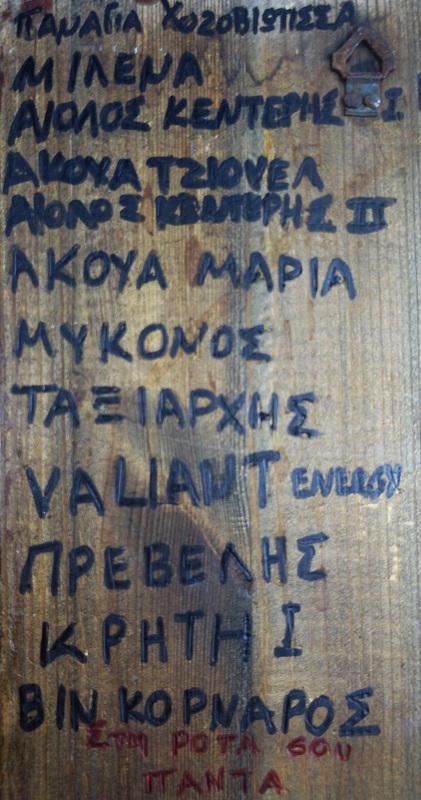 ΠΑΝΑΓΙΑ ΧΟΖΟΒΙΩΤΙΣΣΑ
ΜΙΛΕΝΑ
ΑΙΟΛΟΣ ΚΕΝΤΕΡΗΣ I.
ΑΚΟΥΑ ΤΖΙΟΥΕΛ
ΑΙΟΛΟΣ ΚΕΝΤΕΡΗΣ II
ΑΚΟΥΑ ΜΑΡΙΑ
ΜΥΚΟΝΟΣ
ΤΑΞΙΑΡΧΗΣ
VALIANT ENERGY
ΠΡΕΒΕΛΗΣ
ΚΡΗΤΗ I
ΒΙΝ ΚΟΡΝΑΡΟΣ
ΣΤΗ ΡΟΤΑ σου
ΠΑΝΤΑ